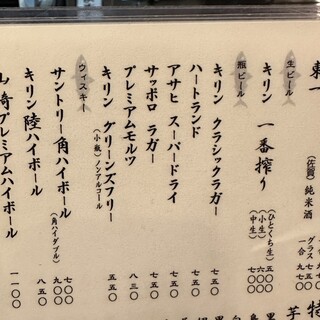 東一
(佐賀)純米酒
グラス
一合
生ビール
キリン 一番搾り
(ひとくち生)
(小生)
(中生)
瓶ビール
キリン クラシックラガー 七五〇
ハートランド 七五〇
アサヒ スーパードライ 七五〇
サッポロ ラガー 七五〇
プレミアムモルツ 八三〇
キリン グリーンズフリー
(小瓶)ノンアルコール 五五〇
ウィスキー
サントリー角ハイボール 七〇〇
(角ハイダブル) 九〇〇
キリン陸ハイボール 八五〇
山崎プレミアムハイボール 一一〇〇